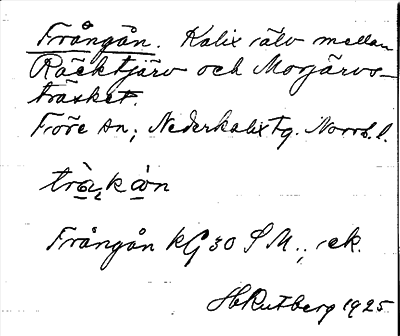 Frångån. Kalix älv mellan
Räcktjärv och Morjärvs-
träsket.
Före än; Nederkalix tg. Norrb. l.
Frångån KG 30 S M.; ek.
H Rutberg 1925